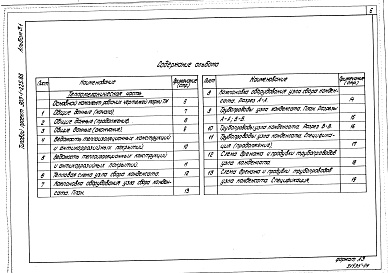 2
Альбом 2.1
Типовой проект 903-1-225.86
Содержание альбома
Лист
Наименование
Примечание (стр.)
Тепломеханическая часть
Основной комплект рабочих чертежей марки ТМ
1 Общие данные (начало) 7
2 Общие данные (продолжение) 8
3 Общие данные (окончание) 9
4 Ведомость теплоизоляционных конструкций
и антикоррозийных покрытий 10
5 Ведомость теплоизоляционных конструкций
и антикоррозийных покрытий 11
6 Тепловая схема узла сбора конденсата. 12
7 Компоновка оборудования узла сбора конден-
сата. План 13
Лист
Наименование
Примечание (стр.)
8 Компоновка оборудования узла сбора конден-
сата. Разрез А-А. 14
9 Трубопроводы узла конденсата. План. Разрезы
А-А; Б-Б. 15
10 Трубопроводы узла конденсата. Разрез В-В. 16
11 Трубопроводы узла конденсата. Специфика-
ция (продолжение) 17
12 Схема дренажа и продувки трубопроводов
узла конденсата 18
13 Схема дренажа и продувки трубопроводов
узла конденсата. Спецификация. 19
формат А3